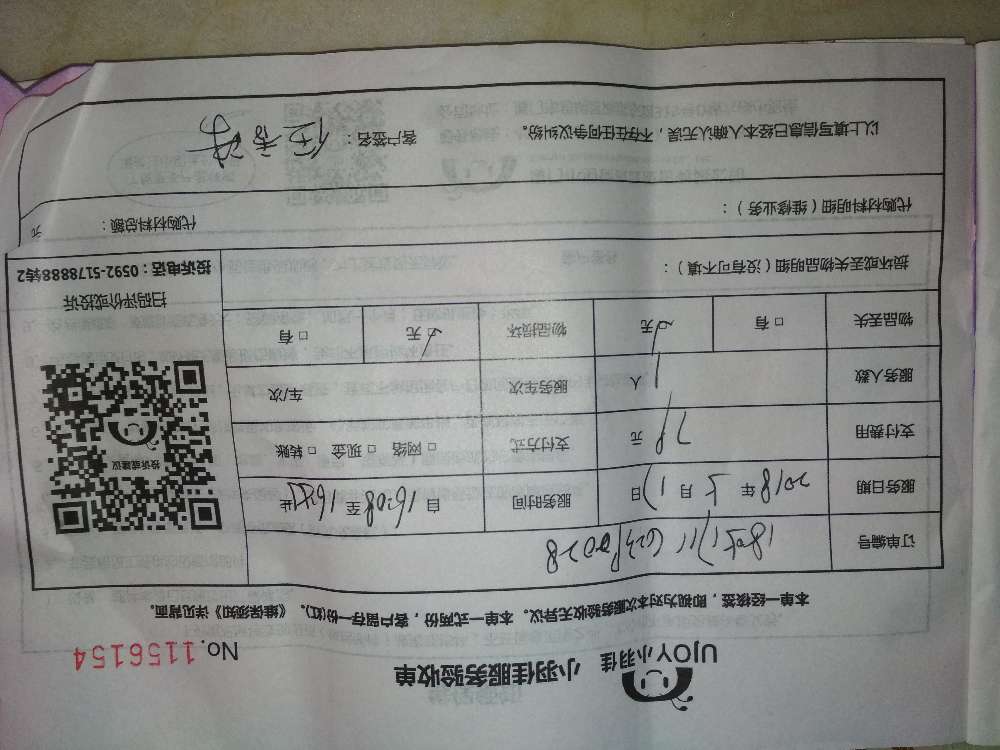 UJOY小羽佳 小羽佳服务验收单 No.1156154
本单一经核签，即视为对本次服务验收无异议。本单一式两份，客户留存一份(红)。《维保须知》详见背面。
订单编号
服务日期 2018 年 5 月 17 日 服务时间 自 16:08 至 止
支付费用 78 元 支付方式 □ 网络 □ 现金 □ 转账
服务人数 1 人 服务车次 车/次
物品丢失 □ 有 ☑ 无 物品损坏 ☑ 无 □ 有
投诉或建议
扫码评价或投诉
投诉电话：0592-5178888转2
损坏或丢失物品明细（没有可不填）：
代购材料明细（维修业务）： 代购材料总额： 元
以上填写信息已经本人确认无误，不存在任何争议纠纷。 客户签名：